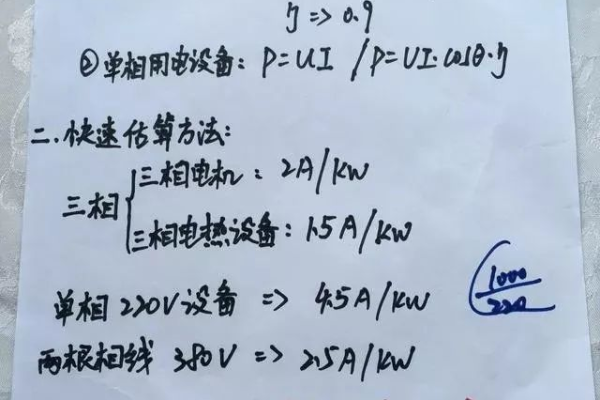 η => 0.9
②单相用电设备: P=UI /P=UI·cosθ·η
二.快速估算方法:
三相
三相电机: 2A/KW
三相电热设备: 1.5A/KW
单相220V设备 => 4.5A/KW
1000/220
两根相线 380V => 2.5A/KW